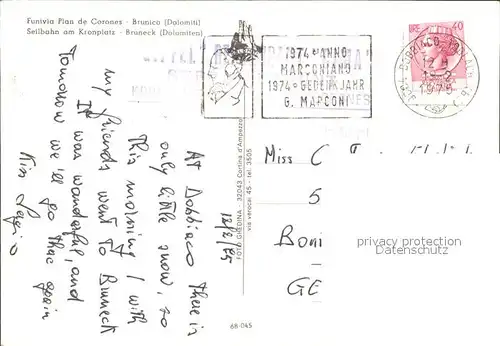 Funivia Plan de Corones - Brunico (Dolomiti)
Seilbahn am Kronplatz - Bruneck (Dolomiten)
12/2/75
At Dobbiaco there is
only little snow, so
this morning I with
my friends went to Bruneck
It was wonderful, and
Tomorrow we'll go there again
Kiss Sergio
68-045
FOTO GHEDINA - 32043 Cortina d'Ampezzo
via verocai 45 - tel. 3505
1974 ANNO
MARCONIANO
1974 GEDENKJAHR
G. MARCONI
LIRE 40
39034 DOBBIACO
1975
Miss C
5
Bon
GE
privacy protection
Datenschutz